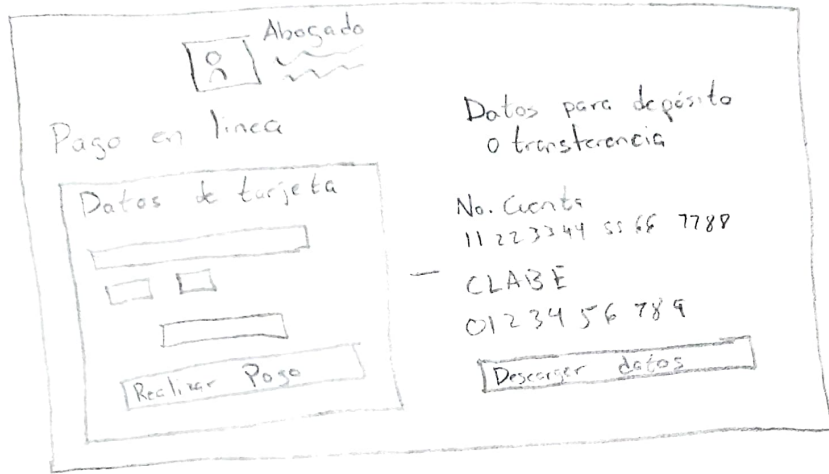 Abogado
Pago en linea
Datos de tarjeta
Realizar Pago
Datos para depósito
o transferencia
No. Cuenta
11 22 33 44 55 66 7788
CLABE
01 2 34 56 789
Descargar datos